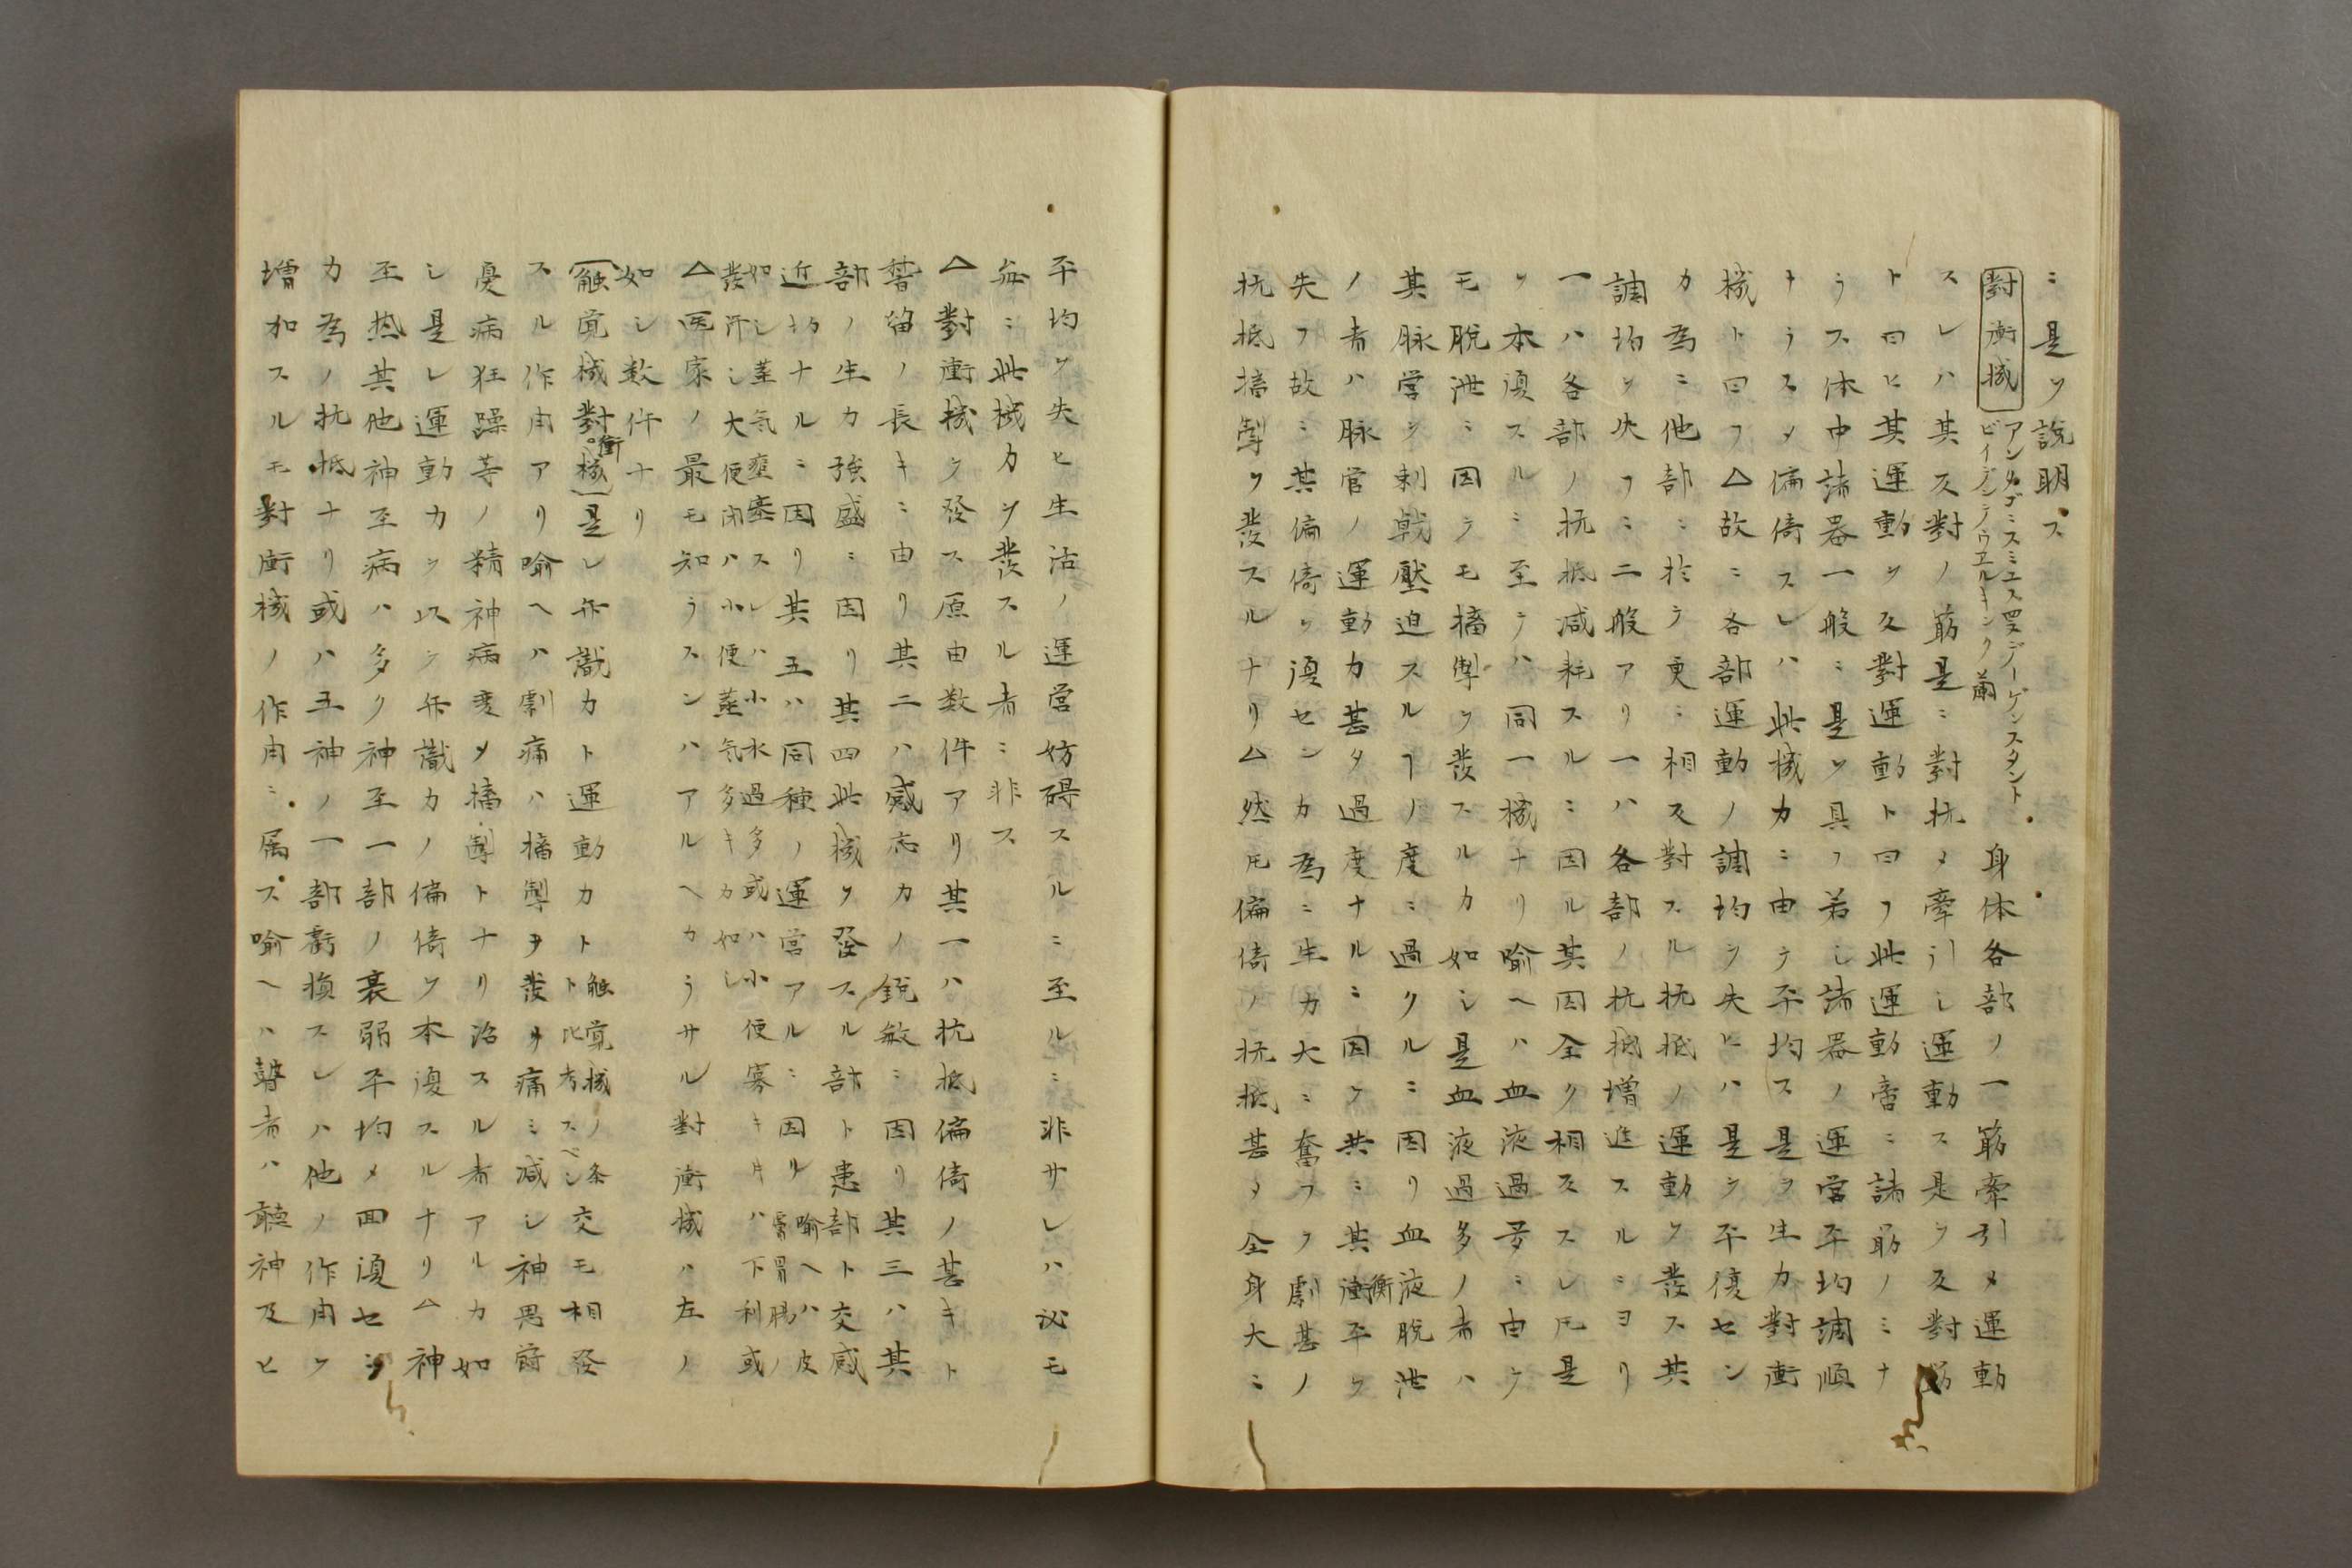 ニ是ヲ説明ス
對衡機 アンタゴニスミユス羅ヲデーゲンスタント ビイデンテウエルキンク蘭 身体各部ノ一筋牽引メ運動
スレハ其反對ノ筋是ニ對抗メ牽引シ運動ス是ヲ反對筋
ト曰ヒ其運動ヲ反對運動ト曰フ此運動啻ニ諸筋ノミナ
ラス体中諸器一般ニ是ヲ具フ若シ諸器ノ運営平均調順
ナラスメ偏倚スレハ此機力ニ由テ平均ス是ヲ生力對衡
機ト曰フ△故ニ各部運動ノ調均ヲ失ヒハ是ヲ平復セン
カ為ニ他部ニ於テ更ニ相反對スル抗抵ノ運動ヲ發ス其
調均ヲ失フニ二般アリ一ハ各部ノ抗抵増進スルニヨリ
一ハ各部ノ抗抵減耗スルニ因ル其因全ク相反スレ𪜈是
ヲ本復スルニ至テハ同一機ナリ喩ヘハ血液過多ニ由テ
モ脱泄ニ因テモ搐搦ヲ發スルカ如シ是血液過多ノ者ハ
其脉管ヲ刺戟壓迫スルヿノ度ニ過クルニ因リ血液脱泄
ノ者ハ脉管ノ運動力甚タ過度ナルニ因テ共ニ其衡平ヲ
失フ故ニ其偏倚ヲ復センカ為ニ生力大ニ奮フヿ劇甚ノ
抗抵搐搦ヲ發スルナリ△然𪜈偏倚ノ抗抵甚メ全身大ニ
平均ヲ失ヒ生活ノ運営妨碍スルニ至ルニ非サレハ必モ

茲ニ此機力ヲ發スル者ニ非ス
△對衡機ヲ發ス原由数件アリ其一ハ抗抵偏倚ノ甚キト
稽留ノ長キニ由リ其二ハ感応力ノ鋭敏ニ因リ其三ハ其
部ノ生力強盛ニ因リ其四此機ヲ發スル部ト患部ト交感
近切ナルニ因リ其五ハ同種ノ運営アルニ因ル 喩ヘハ皮膚胃腸ノ
如シ蒸気壅塞スレハ小水過多或ハ小便寡キ片ハ下利或
發汗シ大便閉ハ小便蒸気多キカ如シ
△医家ノ最モ知ラスンハアルヘカラサル對衡機ハ左ノ
如シ数件ナリ
触覚機對衡機 是レ弁識力ト運動力ト 触覚機ノ条ト比考スベシ 交モ相發
スル作用アリ喩ヘハ劇痛ハ搐搦ヲ發メ痛ミ減シ神思欝
憂病狂躁等ノ精神病変メ搐搦トナリ治スル者アルカ如
シ是レ運動力ヲ以テ弁識力ノ偏倚ヲ本復スルナリ△神
至熱其他神至病ハ多ク神至一部ノ衰弱平均メ回復セン
カ為ノ抗抵ナリ或ハ五神ノ一部虧損スレハ他ノ作用ヲ
増加スルモ對衡機ノ作用ニ属ス喩ヘハ瞽者ハ聴神及ヒ